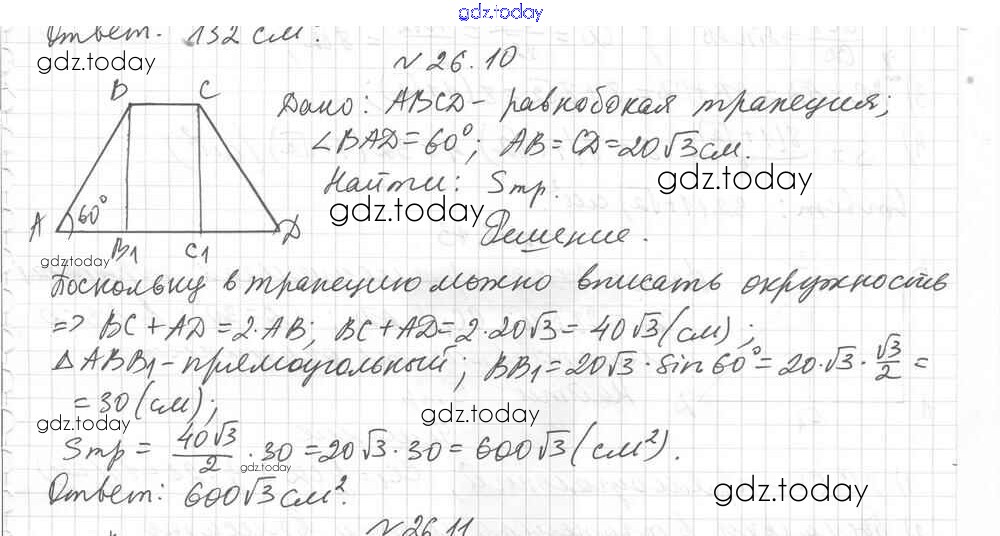 gdz.today
Ответ. 132 см.
gdz.today
№ 26.10
B C
Дано: ABCD - равнобокая трапеция;
∠BAD = 60°; AB = CD = 20√3 см.
Найти: Sтр. gdz.today
gdz.today
A 60° D
B1 C1
Решение.
gdz.today
Поскольку в трапецию можно вписать окружность
=> BC + AD = 2·AB; BC + AD = 2·20√3 = 40√3 (см);
△ABB1 - прямоугольный; BB1 = 20√3 · sin 60° = 20·√3 · √3/2 =
= 30 (см);
gdz.today gdz.today
Sтр = 40√3/2 · 30 = 20√3 · 30 = 600√3 (см²).
gdz.today
Ответ: 600√3 см².
gdz.today
№ 26.11